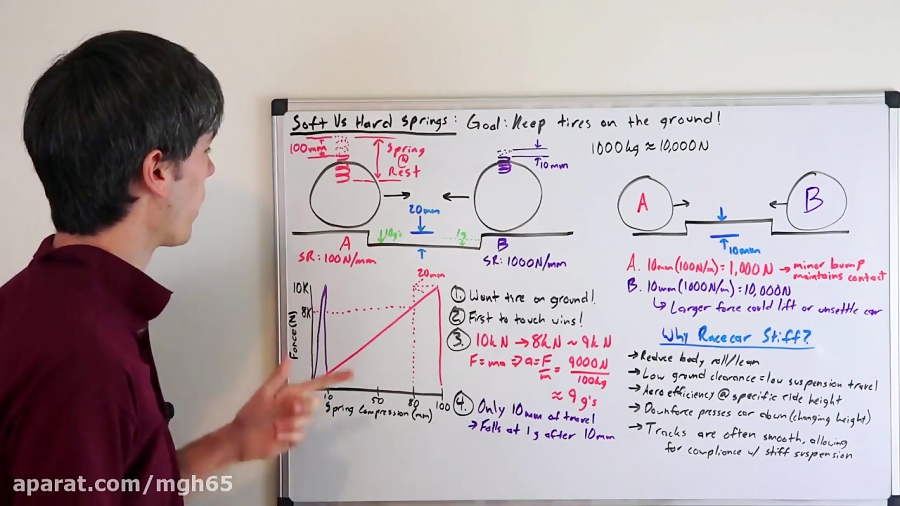 Soft Vs Hard Springs: Goal: Keep tires on the ground!
1000kg ≈ 10,000N
100mm
Spring
@
Rest
10mm
20mm
10g's
1g
A
B
SR: 100N/mm
SR: 1000N/mm
A
B
10mm
A. 10mm(100N/m) = 1,000N → minor bump
maintains contact
B. 10mm(1000N/m) = 10,000N
↳ Larger force could lift or unsettle car
20mm
10K
8K
Force(N)
10
50
80
100
Spring Compression(mm)
1. Want tire on ground!
2. First to touch wins!
3. 10kN → 8kN ~ 9kN
F=ma ⇒ a = F/m = 9000N/100kg
≈ 9g's
4. Only 10mm of travel
→ Falls at 1g after 10mm
Why Racecar Stiff?
→ Reduce body roll/lean
→ Low ground clearance = low suspension travel
→ Aero efficiency @ specific ride height
→ Downforce presses car down (changing height)
→ Tracks are often smooth, allowing
for compliance w/ stiff suspension
aparat.com/mgh65